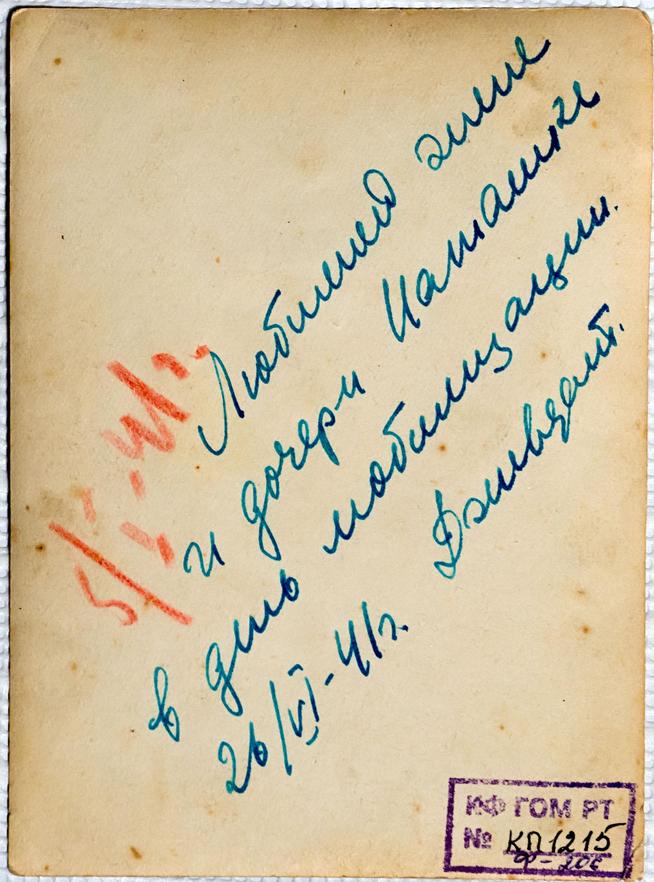 Любимой жене
и дочери Наташке
в день мобилизации.
26/VI-41г.
ИФ ГОМ РТ
№ КП1215